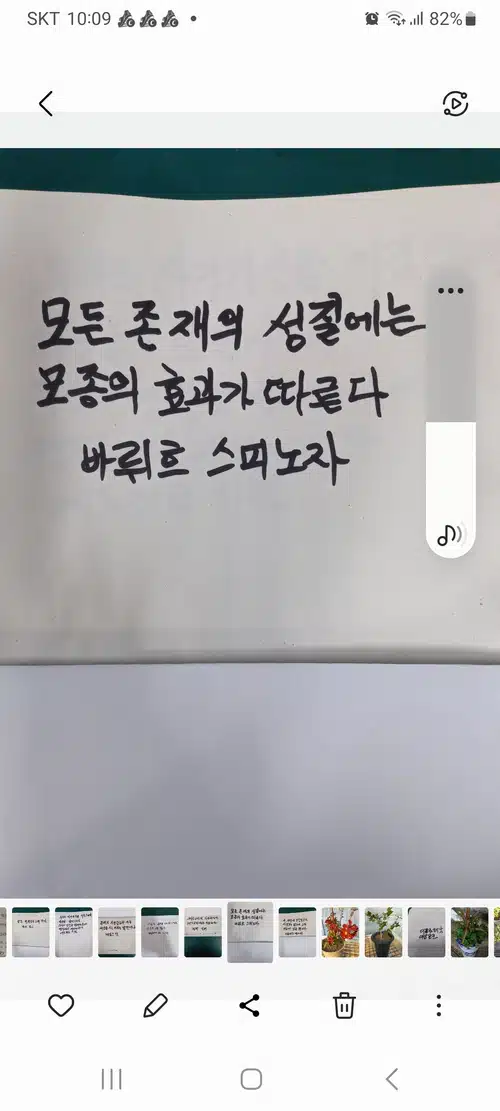 SKT 10:09
82%
모든 존재의 성질에는
모종의 효과가 따른다
바뤼흐 스피노자